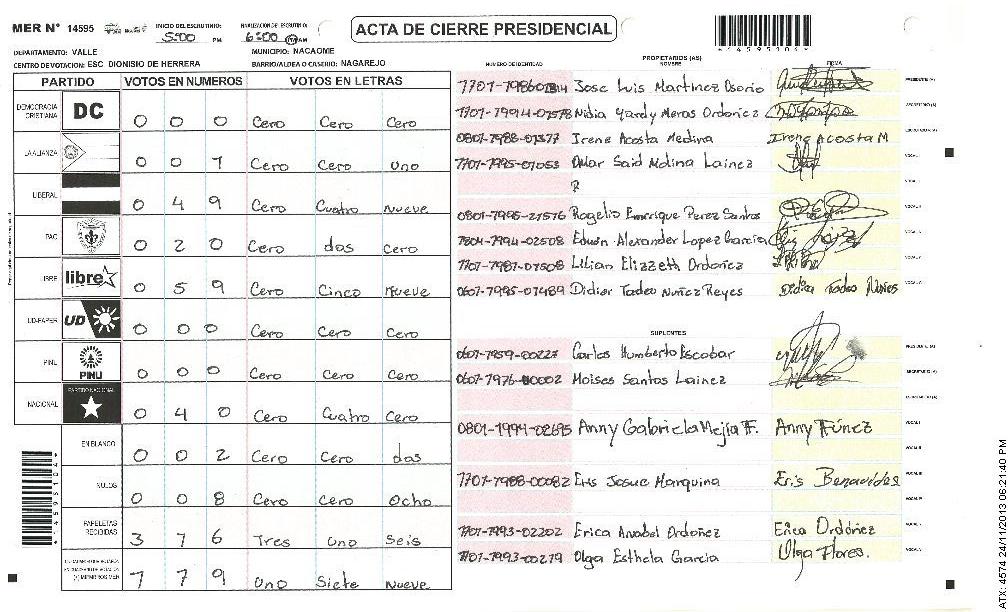 MER N° 14595
INICIO DEL ESCRUTINIO: 5:00 PM
FINALIZACION DE ESCRUTINIO: 6:00 AM
ACTA DE CIERRE PRESIDENCIAL
DEPARTAMENTO: VALLE
MUNICIPIO: NACAOME
CENTRO DE VOTACION: ESC DIONISIO DE HERRERA
BARRIO/ALDEA O CASERIO: NAGAREJO
PARTIDO VOTOS EN NUMEROS VOTOS EN LETRAS
DEMOCRACIA CRISTIANA DC 0 0 0 Cero Cero Cero
LA ALIANZA 0 0 1 Cero Cero Uno
LIBERAL 0 4 9 Cero Cuatro Nueve
PAC 0 2 0 Cero dos Cero
LIBRE libre 0 5 9 Cero Cinco Nueve
UD-FAPER UD 0 0 0 Cero Cero Cero
PINU PINU 0 0 0 Cero Cero Cero
NACIONAL PARTIDO NACIONAL 0 4 0 Cero Cuatro Cero
EN BLANCO 0 0 2 Cero Cero dos
NULOS 0 0 8 Cero Cero Ocho
PAPELETAS RECIBIDAS 3 1 6 Tres Uno Seis
1 7 9 Uno Siete Nueve
PROPIETARIOS (AS)
NUMERO DE IDENTIDAD NOMBRE FIRMA
Jose Luis Martinez Osorio PRESIDENTE (A)
1701-1994-01578 Nidia Yardy Meras Ordoñez SECRETARIO (A)
0801-1988-01377 Irene Acosta Medina Irene Acosta M
1701-1995-01053 Omar Said Molina Lainez VOCAL I
0801-1995-21516 Rogelio Emerique Perez Santos
1804-1994-02508 Eduin Alexander Lopez Garcia
1701-1987-01508 Lilian Elizzeth Ordoñez
0601-1995-01489 Didier Tadeo Nuñez Reyes Didier Tadeo Nuñes
SUPLENTES
0601-1959-00227 Carlos Humberto Escobar PRESIDENTE (A)
0601-1976-00002 Moises Santos Lainez SECRETARIO (A)
0801-1994-02695 Anny Gabriela Mejía F. Anny Fúnez VOCAL I
1701-1988-00082 Eris Josue Marquina Eris Benavides
1701-1993-02202 Erica Anabel Ordoñez Erica Ordóñez
1701-1993-00279 Olga Esthela Garcia Olga Flores.
ATX: 4574 24/11/2013 06:21:40 PM